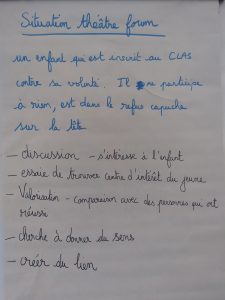 Situation théâtre forum
un enfant qui est inscrit au CLAS
contre sa volonté. Il ne participe
à rien, est dans le refus capuche
sur la tête
- discussion - s'intéresse à l'enfant
- essaie de trouver centre d'intérêt du jeune
- Valorisation - Comparaison avec des personnes qui ont
réussi
- cherche à donner du sens
- créer du lien